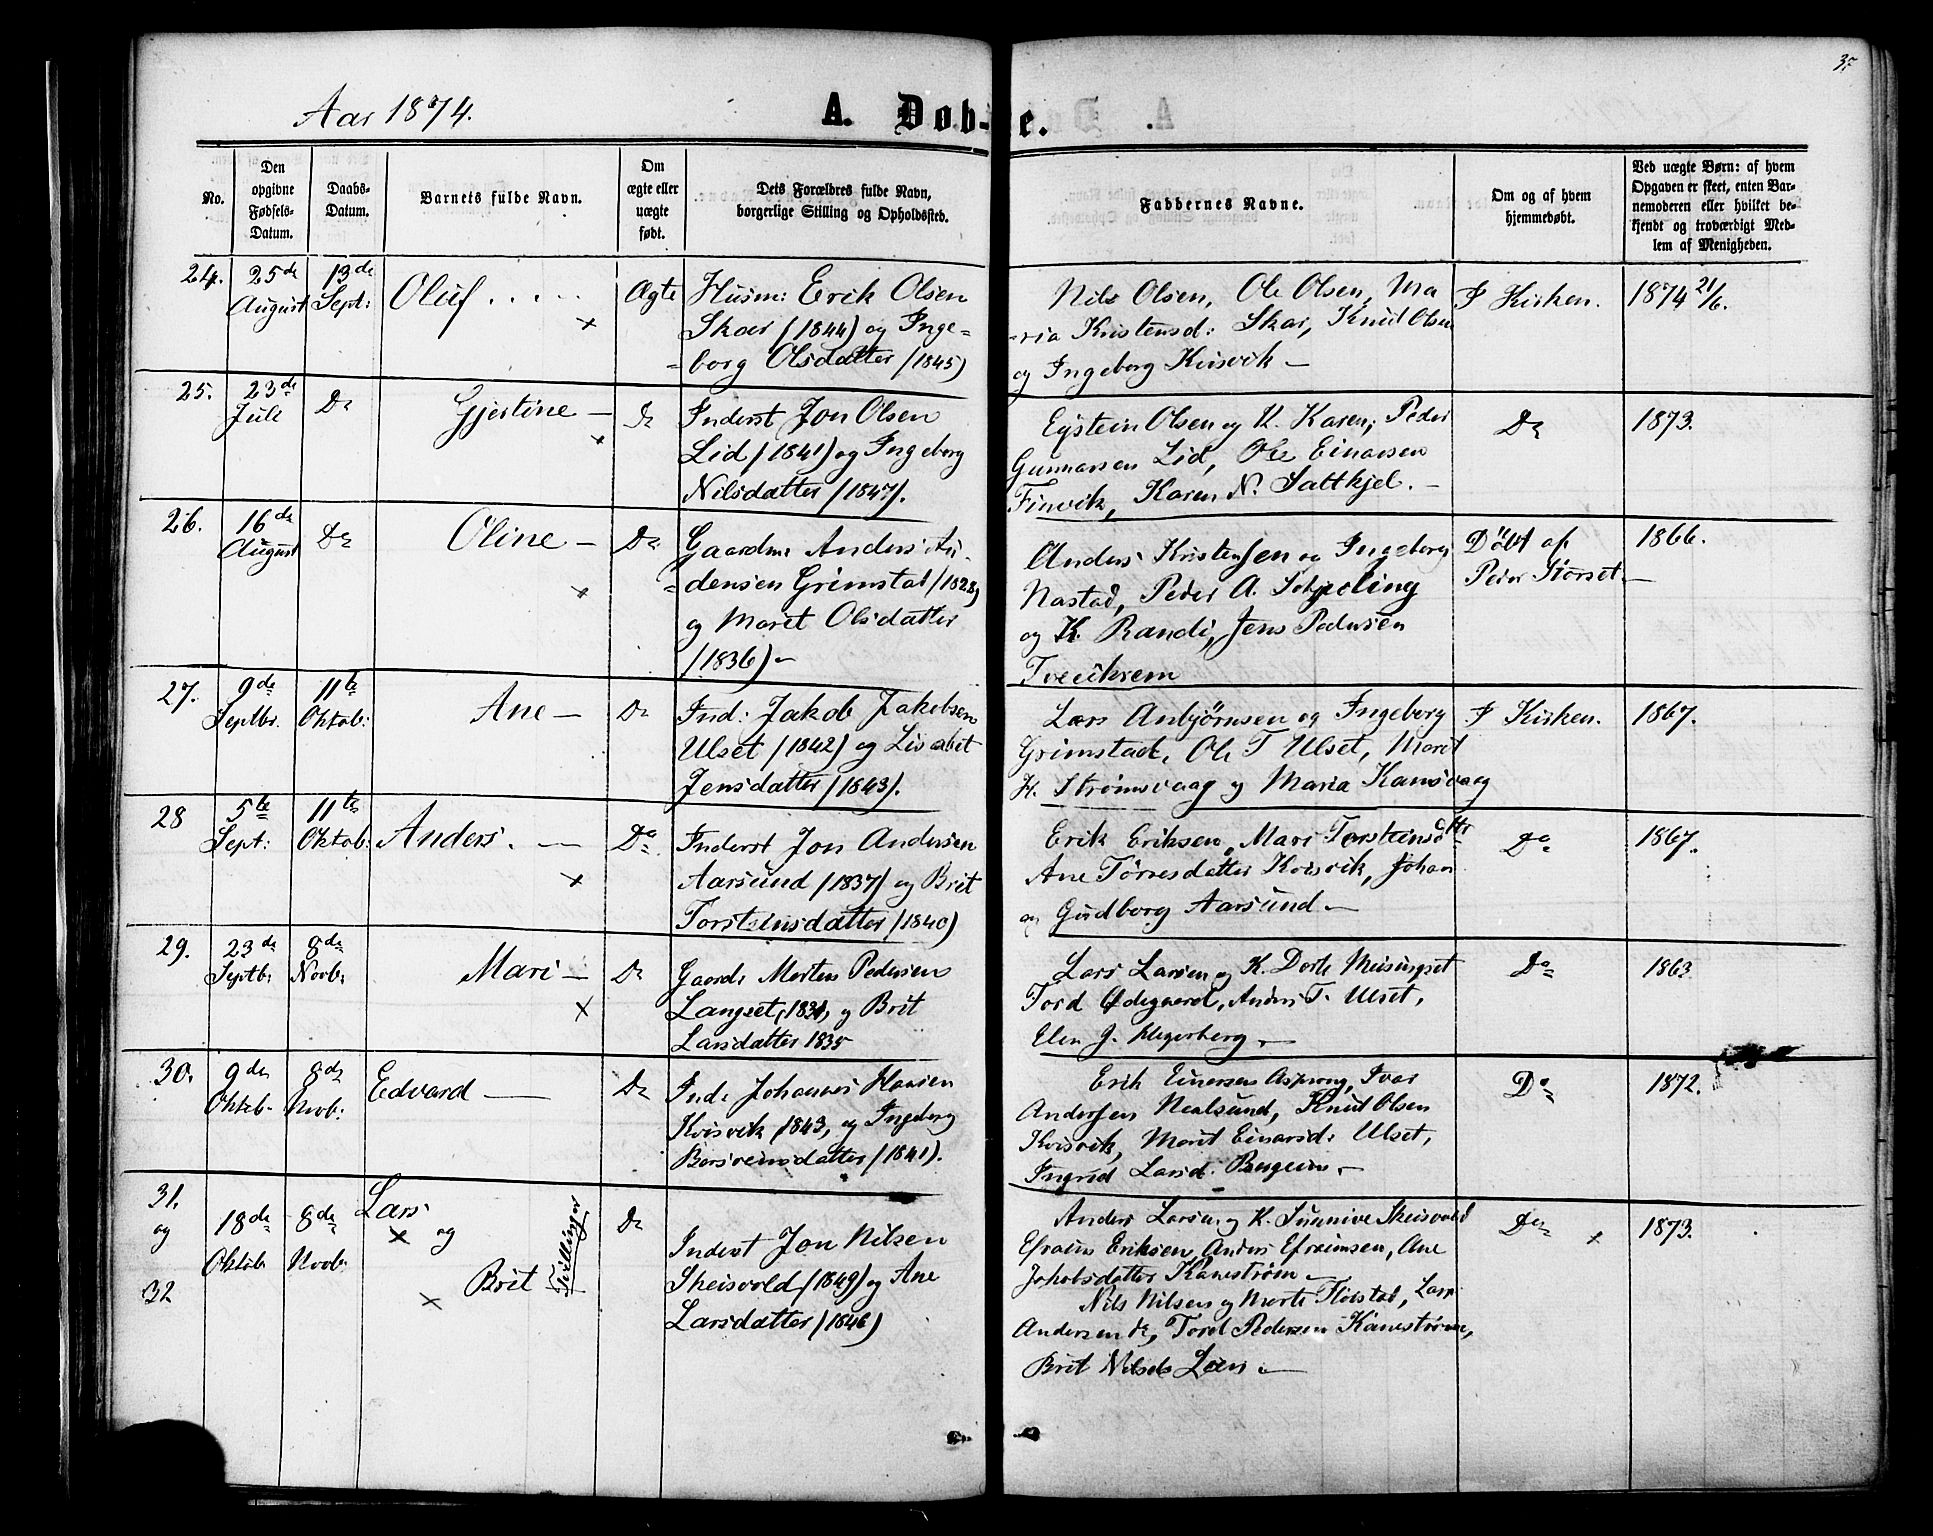 37
Aar 1874.
A. Døb-te.
No.
Den opgivne Fødsels-Datum.
Daabs-Datum.
Barnets fulde Navn.
Om ægte eller uægte født.
Dets Forældres fulde Navn, borgerlige Stilling og Opholdssted.
Faddernes Navne.
Om og af hvem hjemmedøbt.
Ved uægte Børn: af hvem Opgaven er skeet, enten Barnemoderen eller hvilket bekjendt og troværdigt Medlem af Menigheden.
24.
25de August
13de Sept:
Oluf
Ægte
Husm: Erik Olsen
Skar (1844) og Inge-
borg Olsdatter (1845)
Nils Olsen, Ole Olsen, Ma
ria Kristensd: Skar, Knud Olsen
og Ingeborg Kvisvik
I Kirken.
1874 21/6.
25.
23de Juli
Do
Gjertine
Do
Inderst Jon Olsen
Lid (1841) og Ingeborg
Nilsdatter (1847).
Eystein Olsen og K. Karen, Peder
Gunnarsen Lid, Ole Einarsen
Finvik, Karen N. Saltkjel.
Do
1873.
26.
16de August
Do
Oline
Do
Gaardm: Anders Au-
densen Grimstad (1828)
og Marit Olsdatter
(1836)
Anders Kristensen og Ingeborg
Nastad, Peder A.
og K. Randi, Jens Pedersen
Tveekrem
Døbt af
Peder Storset
1866.
27.
9de Septbr.
11te Oktob:
Ane
Do
Ind: Jakob Jakobsen
Ulset (1842) og Lisabet
Jensdatter (1843).
Lars Anbjørnsen og Ingeborg
Grimstad, Ole T Ulset, Marit
H. Strømsvaag og Maria Kansvaag
I Kirken.
1867.
28
5te Sept:
11te Oktob:
Anders
Do
Inderst Jon Andersen
Aarsund (1837) og Brit
Torsteinsdatter (1840)
Erik Eriksen, Mari Torsteinsdttr
Ane Tørresdatter Kvisvik, Johan
og Gudborg Aarsund
Do
1867.
29.
23de Septb:
8de Novb:
Mari
Do
Gaard: Morten Pedersen
Langset, 1831, og Brit
Larsdatter 1835
Lars Larsen og K. Dorte Meisingset
Tord Ødegaard, Anders T. Ulset,
Elen J. Megerberg
Do
1863
30.
9de Oktob.
8de Novb:
Edvard
Do
Ind: Johannes Hansen
Kvisvik (1843, og Ingeborg
Bersveinsdatter (1841).
Erik Einersen Aspong, Ivar
Andersen Nealsund, Knud Olsen
Kvisvik, Marit Einarsd: Ulset,
Ingrid Larsd. Bergeim
Do
1872.
31.
og
32
18de Oktob:
8de Novb:
Lars
og
Brit
Tvillinger
Do
Inderst Jon Nilsen
Skeisvold (1849) og Ane
Larsdatter (1846)
Anders Larsen og K. Sunnive Skeisvold
Efraim Eriksen, Anders Efraimsen, Ane
Jakobsdatter Kanestrøm
Nils Nilsen og Marte Fløistad, Lars
Andersen do, Tord Pedersen Kanestrøm,
Brit Nilsd: Løen
Do
1873.